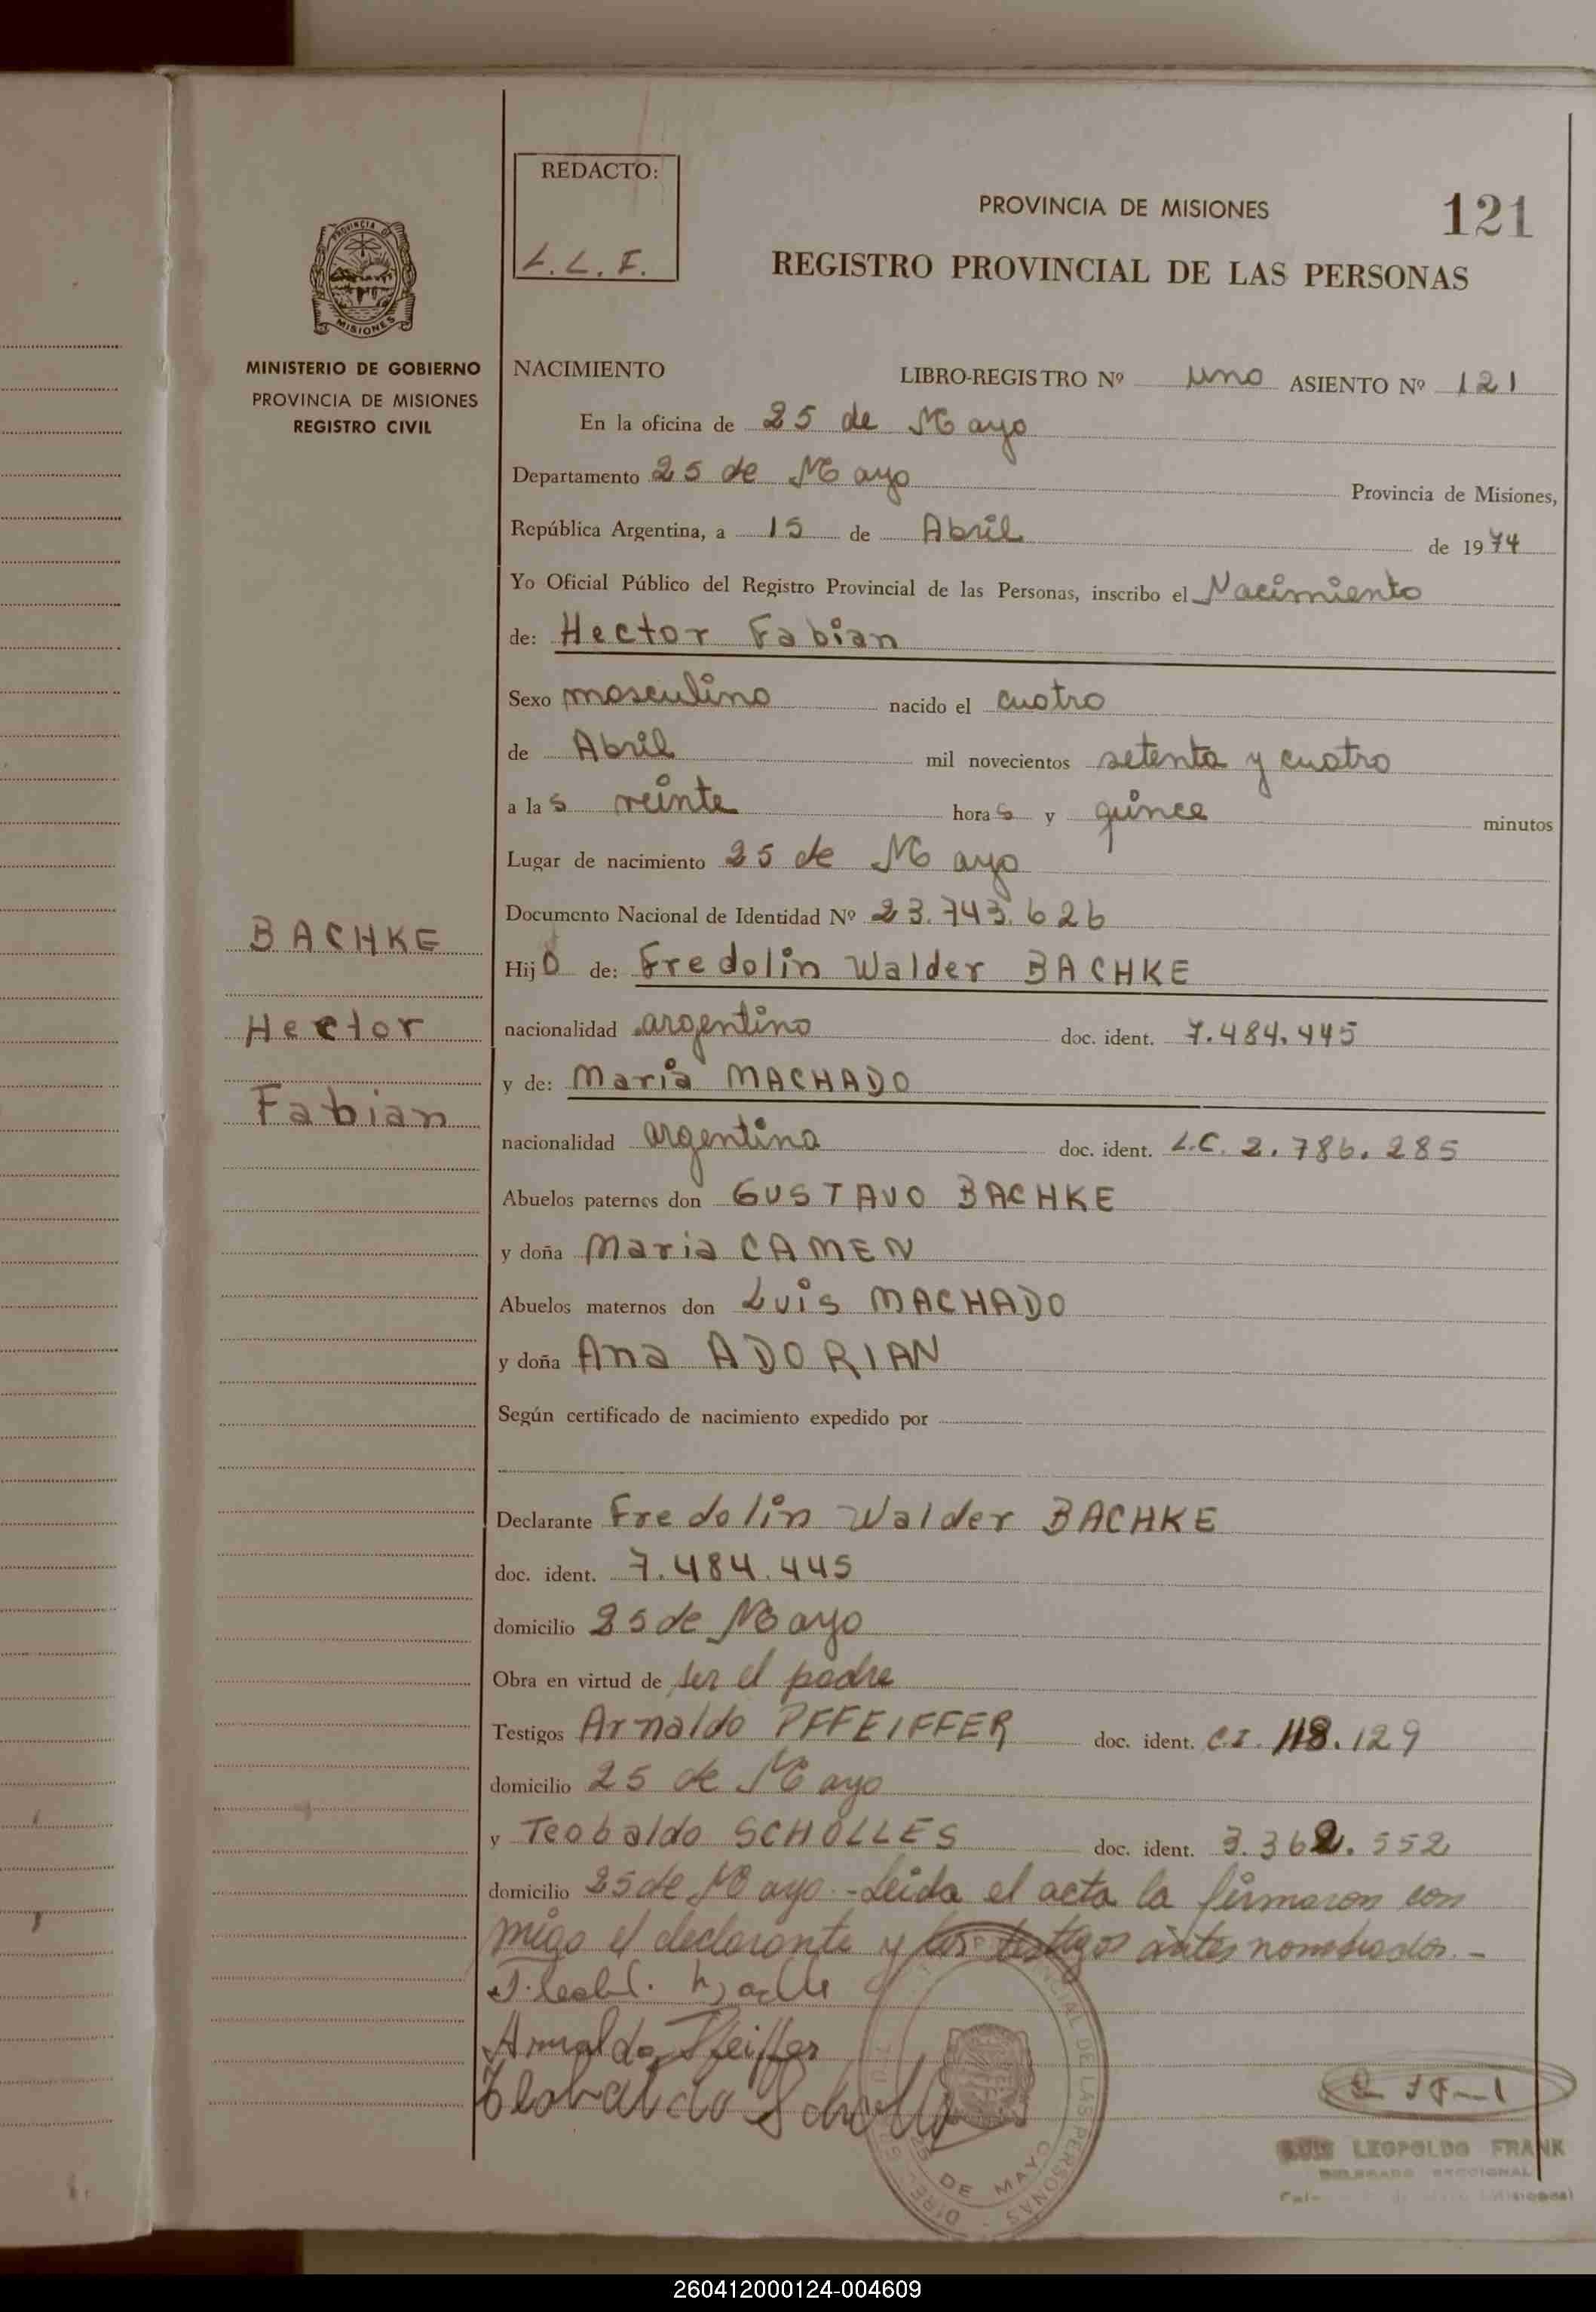 REDACTO:
L.L.F.
PROVINCIA DE MISIONES
121
REGISTRO PROVINCIAL DE LAS PERSONAS
PROVINCIA DE
MISIONES
MINISTERIO DE GOBIERNO
PROVINCIA DE MISIONES
REGISTRO CIVIL
NACIMIENTO LIBRO-REGISTRO Nº uno ASIENTO Nº 121
En la oficina de 25 de Mayo
Departamento 25 de Mayo Provincia de Misiones,
República Argentina, a 15 de Abril de 1974
Yo Oficial Público del Registro Provincial de las Personas, inscribo el Nacimiento
de: Hector Fabian
Sexo masculino nacido el cuatro
de Abril mil novecientos setenta y cuatro
a las veinte horas y quince minutos
Lugar de nacimiento 25 de Mayo
Documento Nacional de Identidad Nº 23.743.626
BACHKE
Hector
Fabian
Hijo de: Fredolin Walder BACHKE
nacionalidad argentino doc. ident. 7.484.445
y de: Maria MACHADO
nacionalidad argentina doc. ident. L.C. 2.786.285
Abuelos paternos don GUSTAVO BACHKE
y doña Maria CAMEN
Abuelos maternos don Luis MACHADO
y doña Ana ADORIAN
Según certificado de nacimiento expedido por
Declarante Fredolin Walder BACHKE
doc. ident. 7.484.445
domicilio 25 de Mayo
Obra en virtud de ser el padre
Testigos Arnaldo PFFEIFFER doc. ident. C.I. 118.129
domicilio 25 de Mayo
y Teobaldo SCHOLLES doc. ident. 3.362.552
domicilio 25 de Mayo.- Leida el acta la firmaron con
migo el declarante y los testigos antes nombrados.-
Arnaldo Pfeiffer
Teobaldo
DE LAS PERSONAS
25 DE MAYO
LUIS LEOPOLDO FRANK
DELEGADO SECCIONAL
260412000124-004609